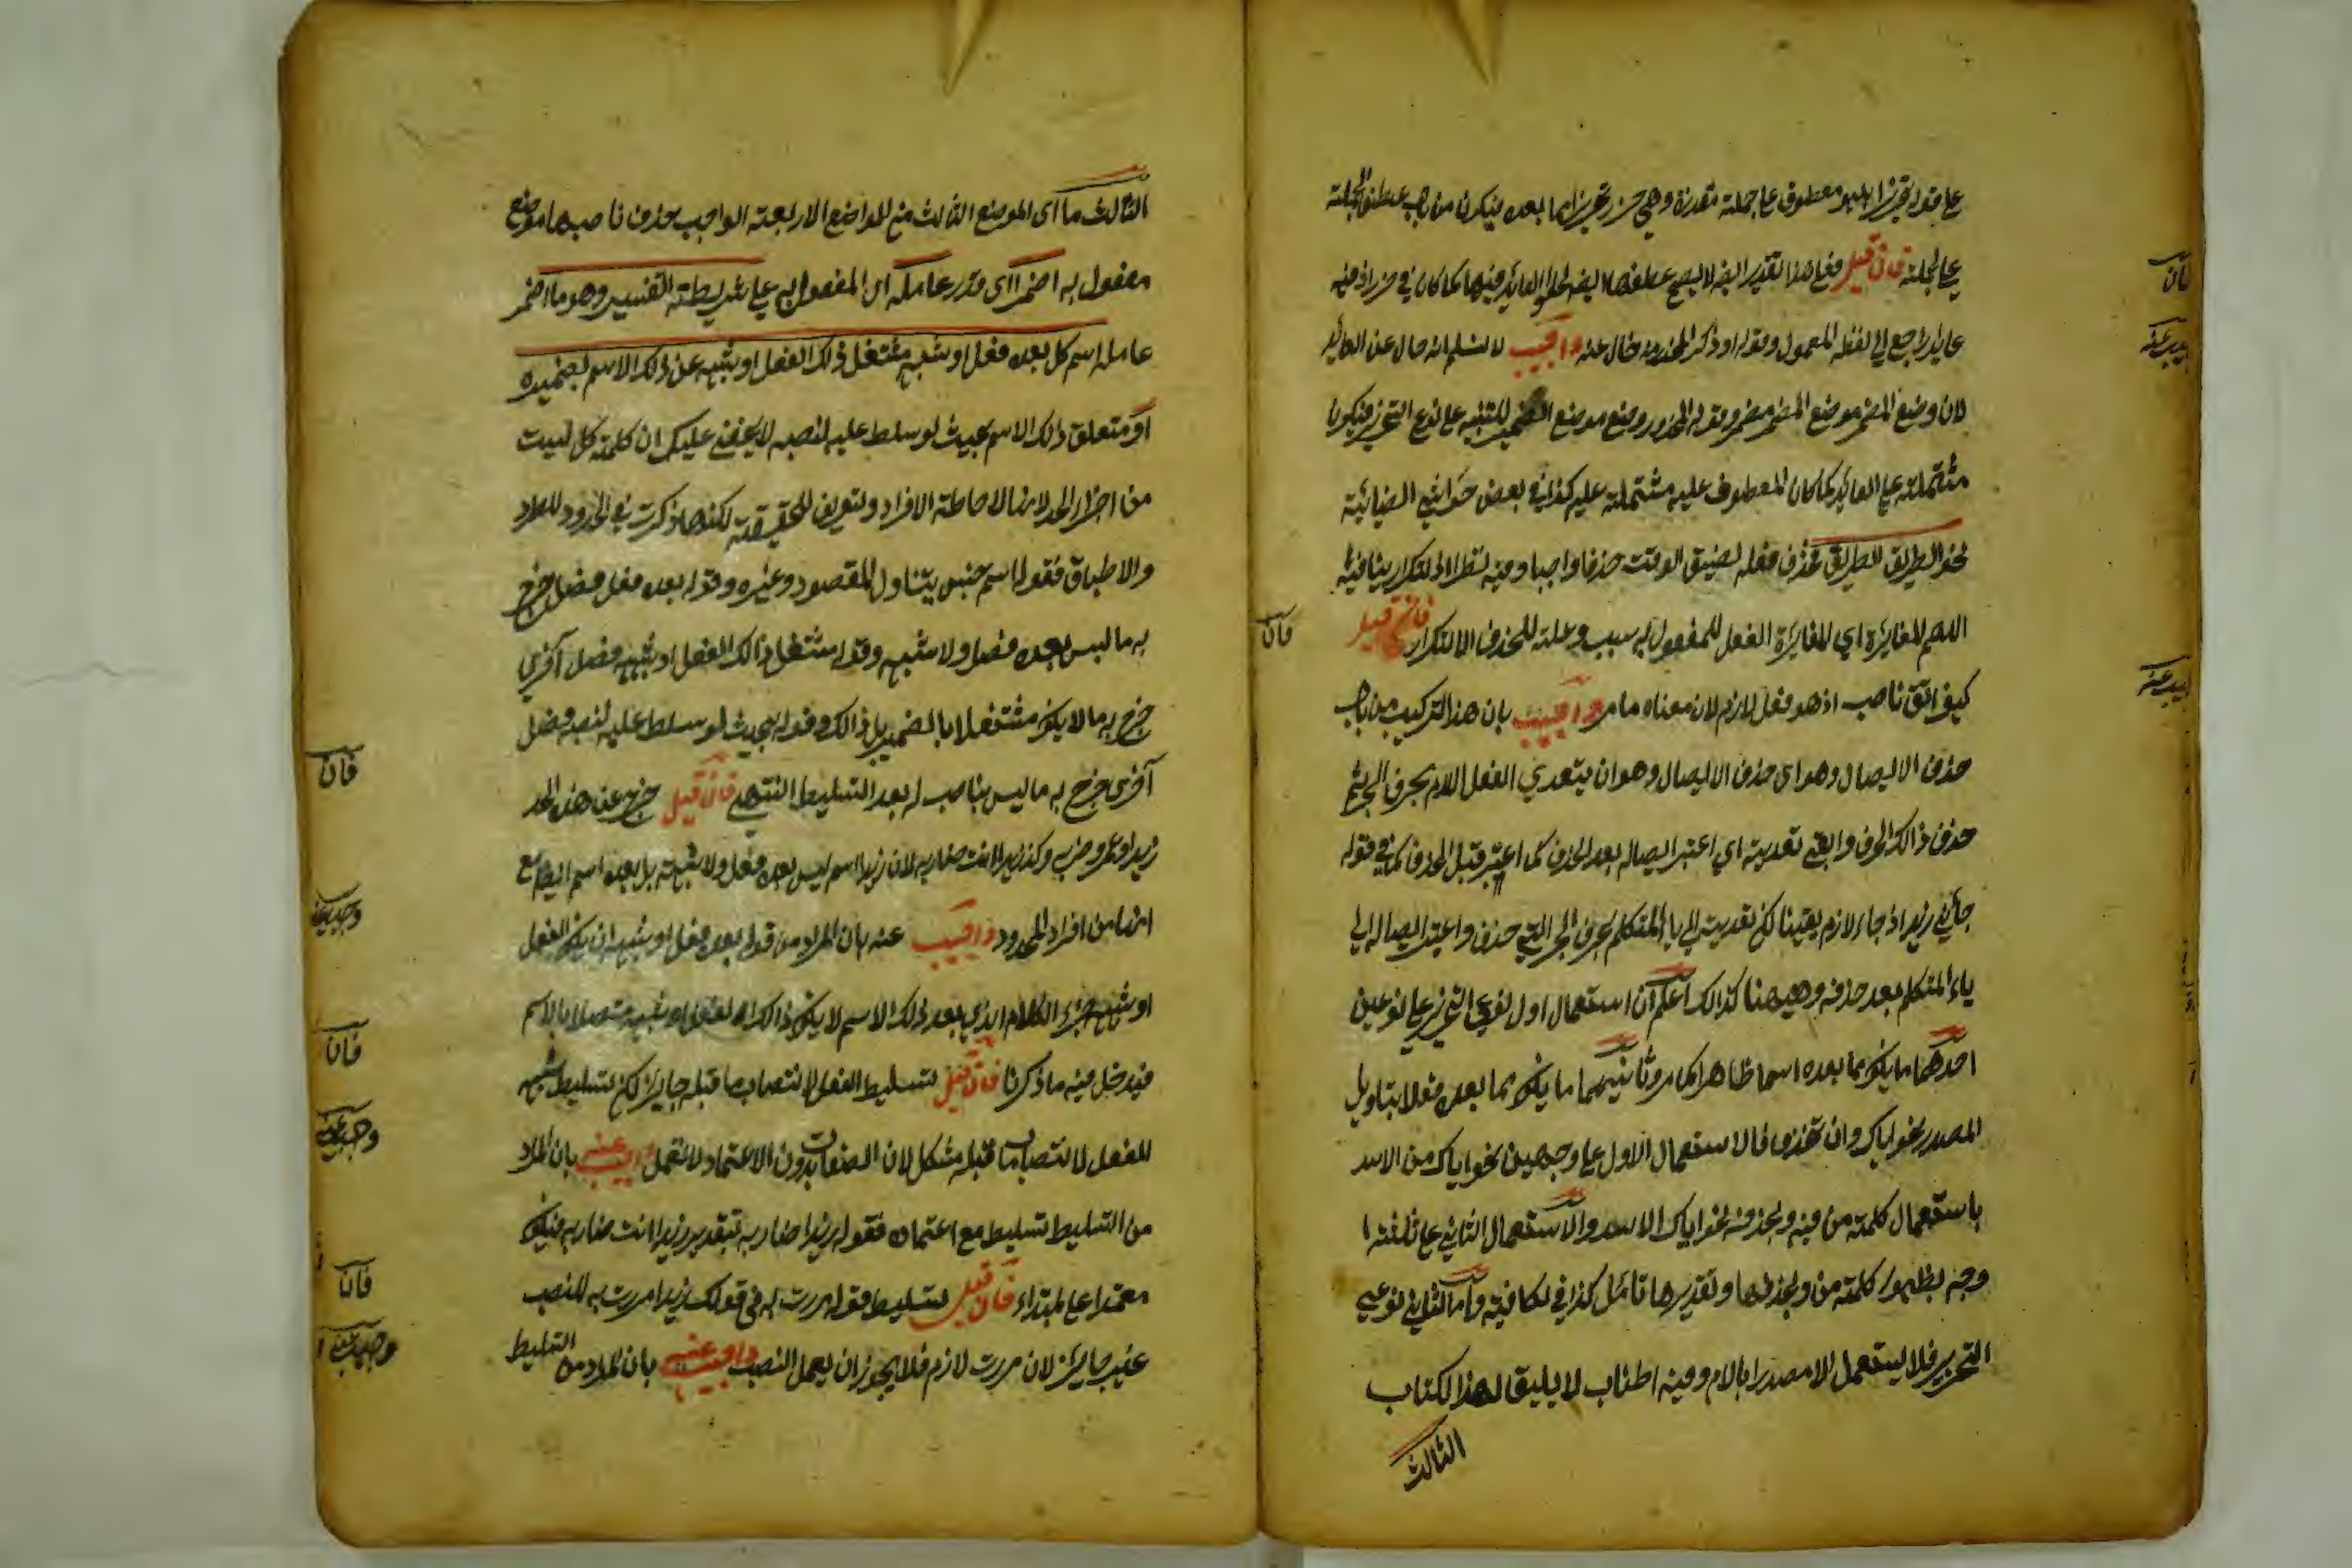 على قوله تحذيرا بل هو معطوف على جملة مقدرة وهي حذر تحذيرا مما بعده فيكون من باب عطف الجملة
على الجملة فان قيل فعلى هذا تقدير ايضا لا يصح عطفها ايضا لخلو العايد فيها كما كان في حذر اذ فيه
عايد راجع الى لفظ المعمول وقوله او ذكر المحذر منه خال عنه واجيب لا نسلم انه خال عن العايد
لان وضع المضمر موضع المضمر وقوله المحذر وضع موضع الضمير للتنبيه على نوع التحذير فيكون
مشتملة على العايد كما كان المعطوف عليه مشتملة عليه كذا في بعض حواشي الضيائية
نحو الطريق الطريق حذف فعله لضيق الوقت حذفا واجبا وفيه نظر اذ التكرار ينافيه
اللهم المغايرة اي المغايرة الفعل للمفعول به سبب وعلة للحذف الا التكرار فان قيل
كيف اتق ناصب اذ هو فعل لازم لان معناه ما مر واجيب بان هذا التركيب من باب
حذف الايصال وهو اي حذف الايصال وهو ان يتعدي الفعل اللازم بحرف الجر ثم
حذف ذالك الحرف وابقي تعديته اي اعتبر ايصاله بعد الحذف كما اعتبر قبل الحذف كما في قوله
جائني زيد اذ جاء لازم يقينا لكن تعديته الى ياء المتكلم بحرف الجر التي حذف واعتبر ايصاله الى
ياء المتكلم بعد حذفه وههنا كذالك اعلم ان استعمال اول نوعي التحذير على نوعين
احدهما ما يكون ما بعده اسما ظاهرا كما مر وثانيهما ما يكون ما بعده فعلا بتاويل
المصدر نحو اياك وان تحذف فالاستعمال الاول على وجهين نحو اياك من الاسد
باستعمال كلمة من فيه وبحذفه نحو اياك الاسد والاستعمال الثاني على ثلثة ا
وجه بظهور كلمة من وبحذفها وتقديرها تامل كذا في الكافية واما الثاني نوعي
التحذير فلا يستعمل الا مصدرا بالام وفيه اطناب لا يليق لهذا الكتاب
الثالث
فان
اجيب عنه
فان
اجيب عنه
الثالث ما اي الموضع الثالث من المواضع الاربعة الواجب حذف ناصبها موضع
مفعول به اضمر اي قدر عامله اي المفعول به على شريطة التفسير وهو ما اضمر
عامله اسم كل بعده فعل او شبهه مشتغل ذلك الفعل او شبهه عن ذلك الاسم بضميره
او متعلق ذلك الاسم بحيث لو سلط عليه لنصبه لا يخفى عليك ان كلمة كل ليست
من اجزاء الحد لانها لاحاطة الافراد والتعريف للحقيقة لكنها ذكرت في الحدود للطرد
والاطباق فقوله اسم جنس يتناول المقصود وغيره وقوله بعده فعل فصل خرج
به ما ليس بعده فصل ولا شبهه وقوله مشتغل ذالك الفعل او شبهه فصل آخري
خرج به ما لا يكون مشتغلا بالضمير بل ذالك وقوله بحيث لو سلط عليه لنصبه فصل
آخري خرج به ما ليس بناصب له بعد التسليط انتهى فان قيل خرج عن هذه الحد
زيدا وعمرو ضرب وكذ زيدا انت ضاربه لان زيدا اسم ليس بعده فعل ولا شبهه بل بعده اسم ايضا مع
انها من افراد المحدود واجيب عنه بان المراد من قوله بعده فعل او شبهه ان يكون الفعل
او شبهه جزء الكلام الذي بعد ذلك الاسم لا يكون ذالك الفعل او شبهه متصلا بالاسم
فيدخل فيه ما ذكرنا فان قيل تسليط الفعل لانتصاب ما قبله جايز لكن تسليط شبهه
الفعل لانتصاب ما قبله مشكل لان الصفات بدون الاعتماد لا تعمل واجيب عنه بان المراد
من التسليط تسليط مع اعتماده فقوله زيدا ضاربه بتقدير زيدا انت ضاربه فيكون
معتمدا على المبتداء فان قيل تسليط قوله مررت به في قولك زيدا مررت به للنصب
غير جايز لان مررت لازم فلا يجوز ان يعمل النصب واجيب عنه بان المراد من التسليط
فان
وجيب عنه
فان
وجيب عنه
فان
وجيب عنه